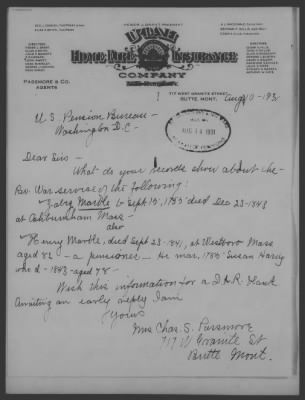 HEBER J. GRANT, PRESIDENT
UTAH
HOME FIRE INSURANCE
COMPANY
DIRECTORS
PASSMORE & CO.
AGENTS
717 WEST GRANITE STREET
BUTTE, MONT. Aug 10 - 193
U. S. Pension Bureau -
Washington D.C. -
AUG 14 1931
Dear Sirs -
What do your records show about the
Rev War service of the following:
Marble b Sept 10, 1755 died Dec 23 - 1848
at Ashburnham Mass -
also
Henry Marble, died Sept 28 - 1841, at Westboro Mass
aged 82 - a pensioner - He mar, 1785 Susan Harvey
who d - 1843 - aged 78 -
Wish this information for a D.A.R. blank
Awaiting an early reply I am
Yours
Mrs Chas. S. Passmore
717 W Granite St
Butte Mont.